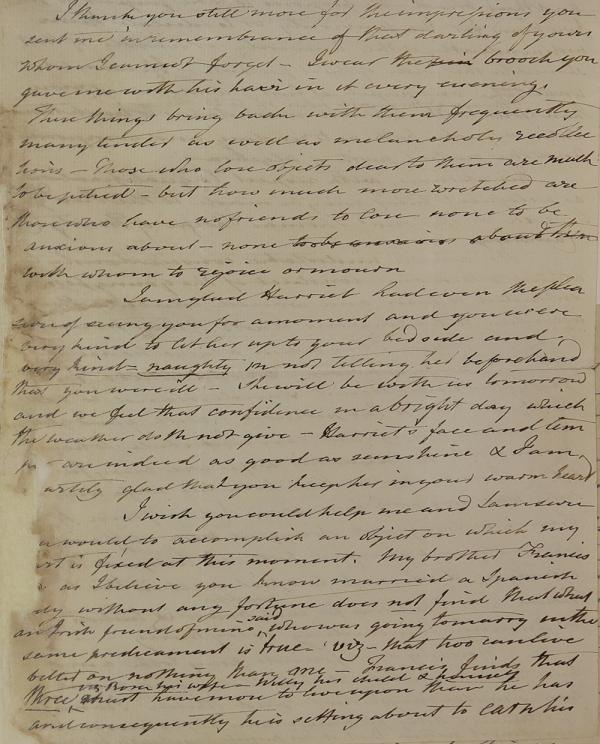 I thank you still more for the impressions you
sent me in remembrance of that darling of yours
whom I cannot forget – I wear the pin brooch you
gave me with his hair in it every evening.
These things bring back with them frequently
many tender as well as melancholy recollec
tions – Those who lose objects dear to them are much
to be pitied – but how much more wretched are
those who have no friends to lose none to be
anxious about – none to be anxious about
with whom to rejoice or mourn
I am glad Harriet had even the plea
sure of seeing you for a moment and you were
very kind to let her up to your bedside and
very kind = naughty in not telling her beforehand
that you were ill – She will be with us tomorrow
and we feel that confidence in a bright day which
the weather doth not give – Harriet's face and tem
are indeed as good as sunshine & I am
artily glad that you keep her in your warm heart
I wish you could help me and I am sure
u would to accomplish an object on which my
rt is fixed at this moment. My brother Francis
as I believe you know married a Spanish
dy without any fortune does not find that what
an Irish friend of mine said, who was going to marry in the
same predicament is true – viz – that two can live
better on nothing than one – Francis finds that
viz Rosa his wife – Willy his child & himself
three must have more to live upon than he has
and consequently he is setting about to eat his